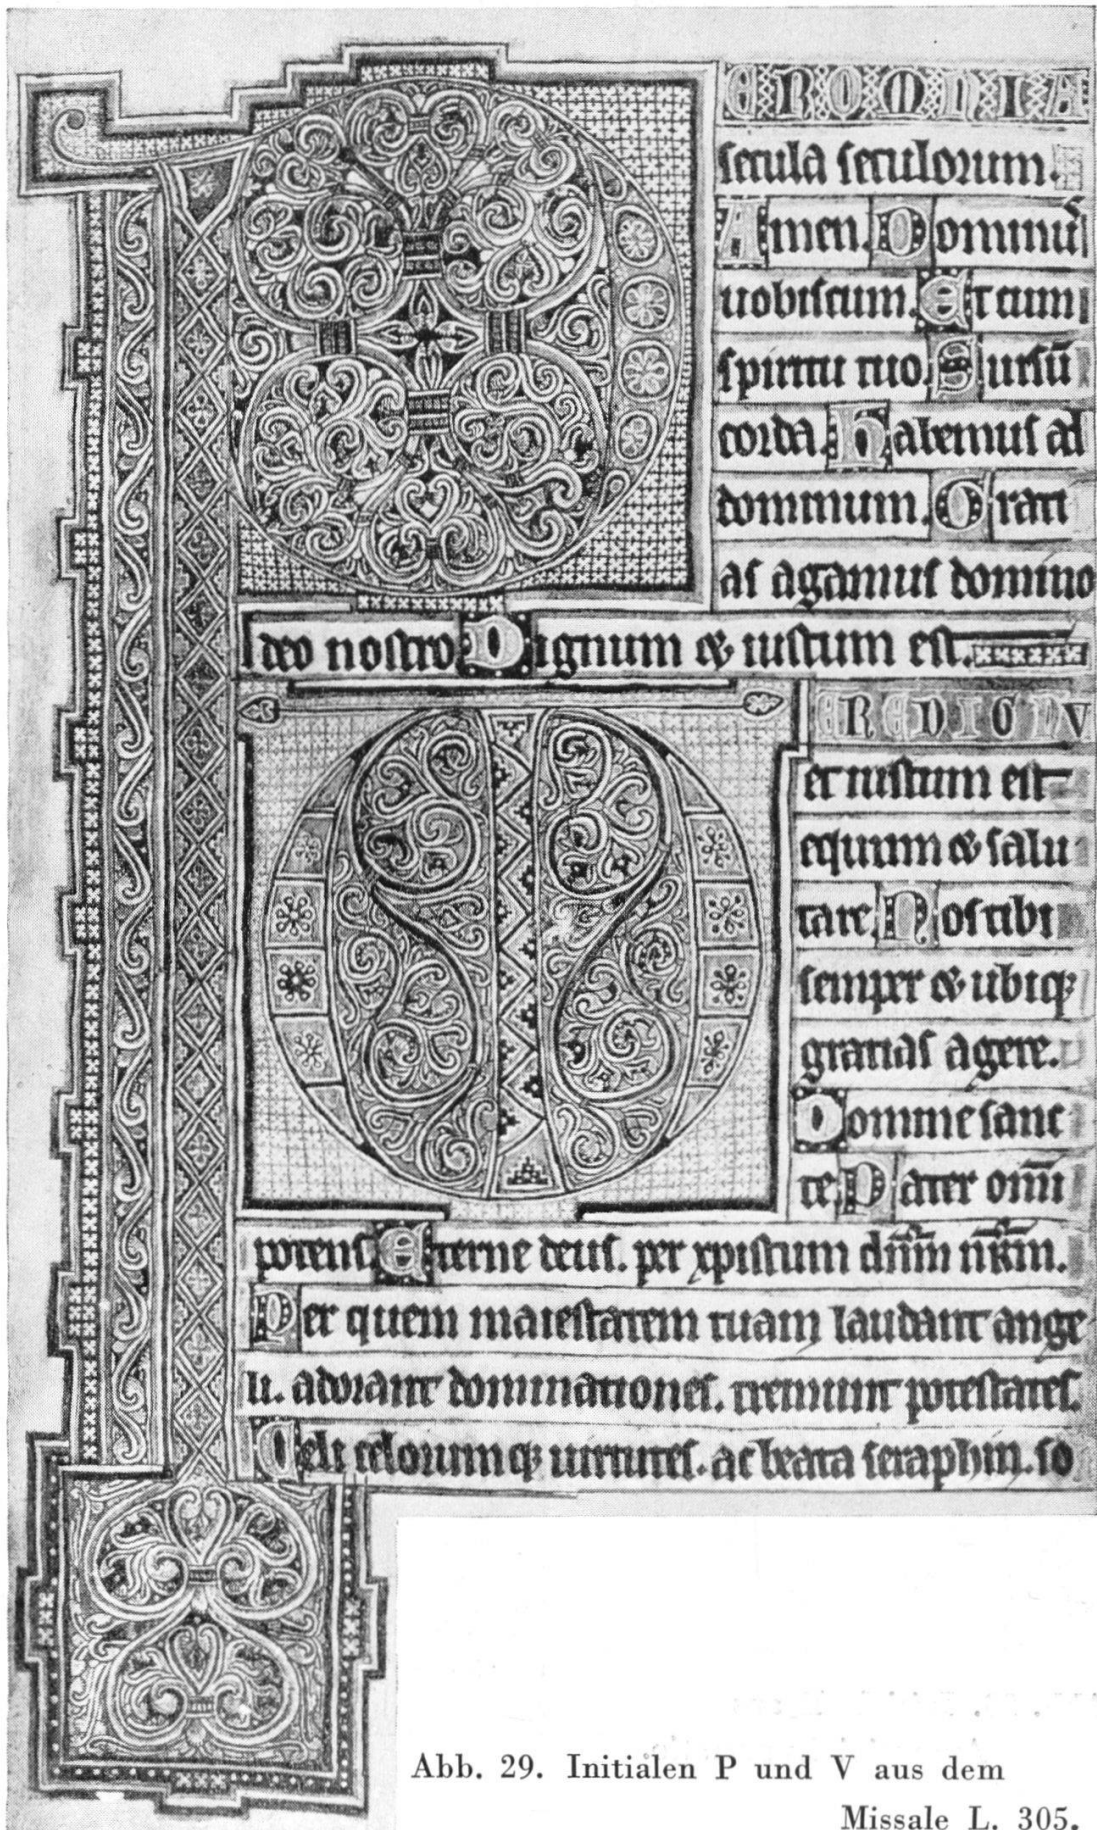 P ER OMNIA
secula seculorum.
Amen. Dominuſ
uobiſcum. Et cum
ſpiritu tuo. Surſū
corda. Habemuſ ad
dominum. Grati
aſ agamuſ domino
deo noſtro. Dignum & iuſtum eſt.
V ERE DIGNV
et iuſtum eſt
equum & ſalu
tare. Noſ tibi
ſemper & ubiq;
gratiaſ agere.
Domine ſanc
te. Pater om̄i
potenſ. Eterne deuſ. per xpiſtum dn̄m nr̄m.
Per quem maieſtatem tuam laudant ange
li. adorant dominationeſ. tremunt poteſtateſ.
Celi celorumq; uirtuteſ. ac beata ſeraphin. ſo
Abb. 29. Initialen P und V aus dem
Missale L. 305.